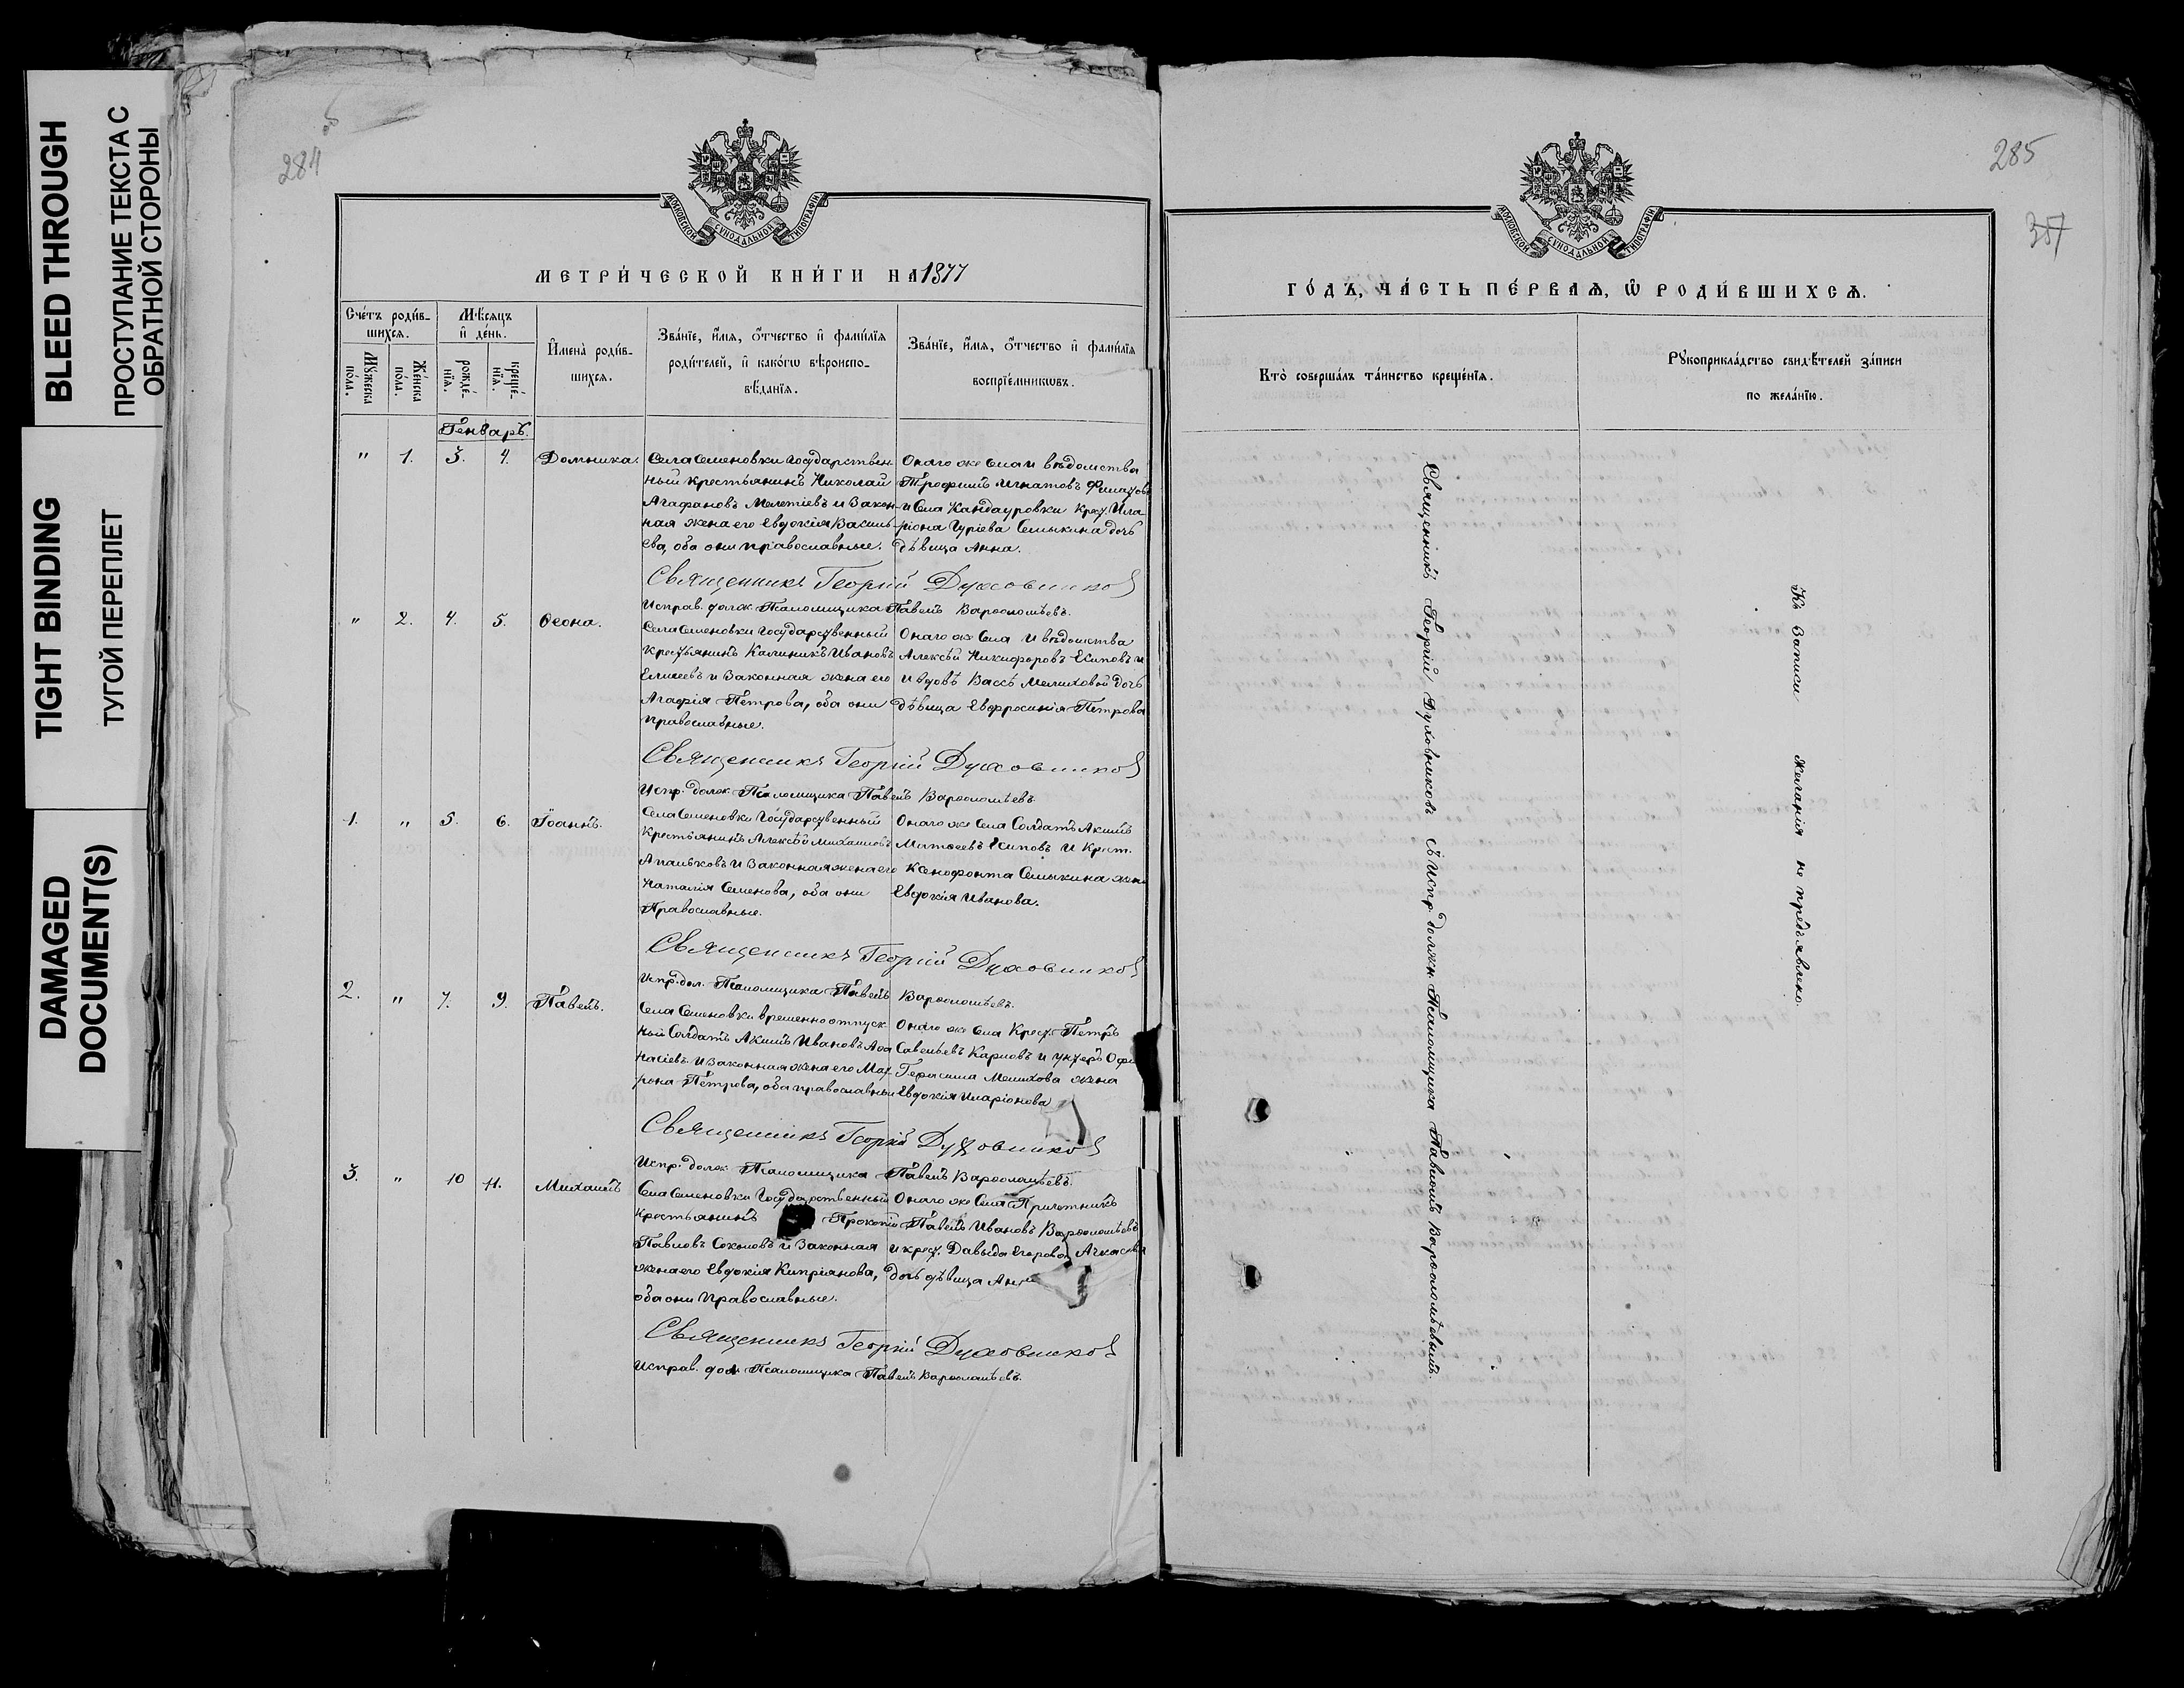 BLEED THROUGH
ПРОСТУПАНИЕ ТЕКСТА С
ОБРАТНОЙ СТОРОНЫ
TIGHT BINDING
ТУГОЙ ПЕРЕПЛЕТ
DAMAGED
DOCUMENT(S)
284
об
МОСКОВСКОЙ СѴНОДАЛЬНОЙ ТИПОГРАФІИ
МЕТРИ́ЧЕСКОЙ КНИ́ГИ НА 1877
Сче́тъ роди́в-
шихсѧ.
Мꙋ́жеска
по́ла.
Же́нска
по́ла.
Мѣ́сѧцъ
и҆ де́нь.
рожде́-
нїѧ.
креще́-
нїѧ.
И҆мена̀ роди́в-
шихсѧ.
Зва́нїе, и҆́мѧ, ѻ҆́тчество и҆ фами́лїѧ
роди́телей, и҆ како́гѡ вѣроиспо-
вѣ́данїѧ.
Зва́нїе, и҆́мѧ, ѻ҆́тчество и҆ фами́лїѧ
воспрїе́мникѡвъ.
Генварь.
" 1. 3. 4. Домника.
Села Семеновки государствен-
ный крестьянинъ Николай
Агафановъ Мелетіевъ и закон-
ная жена его Евдокія Василь-
ева, оба они православные.
Онаго же села и вѣдомства
Трофимъ Игнатовъ
и села Кандауровки крест. Ила-
ріона Гуріева Семыкина дочь
дѣвица Анна.
Священникъ Георгій Духовников
Исправ. долж. Псаломщика Павелъ Варѳоломѣевъ.
" 2. 4. 5. Ѳеона.
Села Семеновки государственный
крестьянинъ Калиникъ Ивановъ
Елисеевъ и законная жена его
Агафія Петрова, оба они
православные.
Онаго же села и вѣдомства
Алексѣй Никифоровъ Есиповъ и
и вдовѣ Вассѣ Мелиховой дочь
дѣвица Евфросинія Петрова
Священникъ Георгій Духовников
Испр. долж. Псаломщика Павелъ Варѳоломѣевъ.
1. " 5. 6. Іоаннъ.
Села Семеновки государственный
крестьянинъ Алексѣй Михаиловъ
Апальковъ и законная жена его
Наталія Семенова, оба они
Православные.
Онаго же села Солдатъ Акимъ
Матвеевъ Есиповъ и крест.
Ксенофонта Семыкина жена
Евдокія Иванова.
Священникъ Георгій Духовников
Испр. дол. Псаломщика Павелъ Варѳоломѣевъ.
2. " 7. 9. Павелъ.
Села Семеновки временноотпуск-
ный Солдатъ Акимъ Ивановъ Аѳа-
насіевъ и законная жена его Мат-
рона Петрова, оба православные
Онаго же села крест. Петръ
Савельевъ Карповъ и унтеръ Офи
Герасима Мелихова жена
Евдокія Иларіонова
Священникъ Георгій Духовников
Испр. долж. Псаломщика Павелъ Варѳоломѣевъ.
3. " 10 11. Михаилъ
Села Семеновки государственный
крестьянинъ Прокопій
Павловъ Соколовъ и законная
жена его Евдокія Кипріянова,
оба они православные.
Онаго же села Причетникъ
Павелъ Ивановъ Варѳоломѣевъ
и крест. Давыда Егорова
дочь дѣвица Анна
Священникъ Георгій Духовников
Исправ. дол. Псаломщика Павелъ Варѳоломѣевъ.
285
357
МОСКОВСКОЙ СѴНОДАЛЬНОЙ ТИПОГРАФІИ
ГО́ДЪ, ЧА́СТЬ ПЕ́РВАѦ, Ѽ РОДИ́ВШИХСѦ.
Кто̀ соверша́лъ та́инство креще́нїѧ.
Рꙋкоприкла́дство свидѣ́телей за́писи
по жела́нїю.
Священникъ Георгій Духовниковъ съ Испр. должн. Псаломщика Павломъ Варѳоломѣевымъ.
Къ записи желанія не предъявлено.